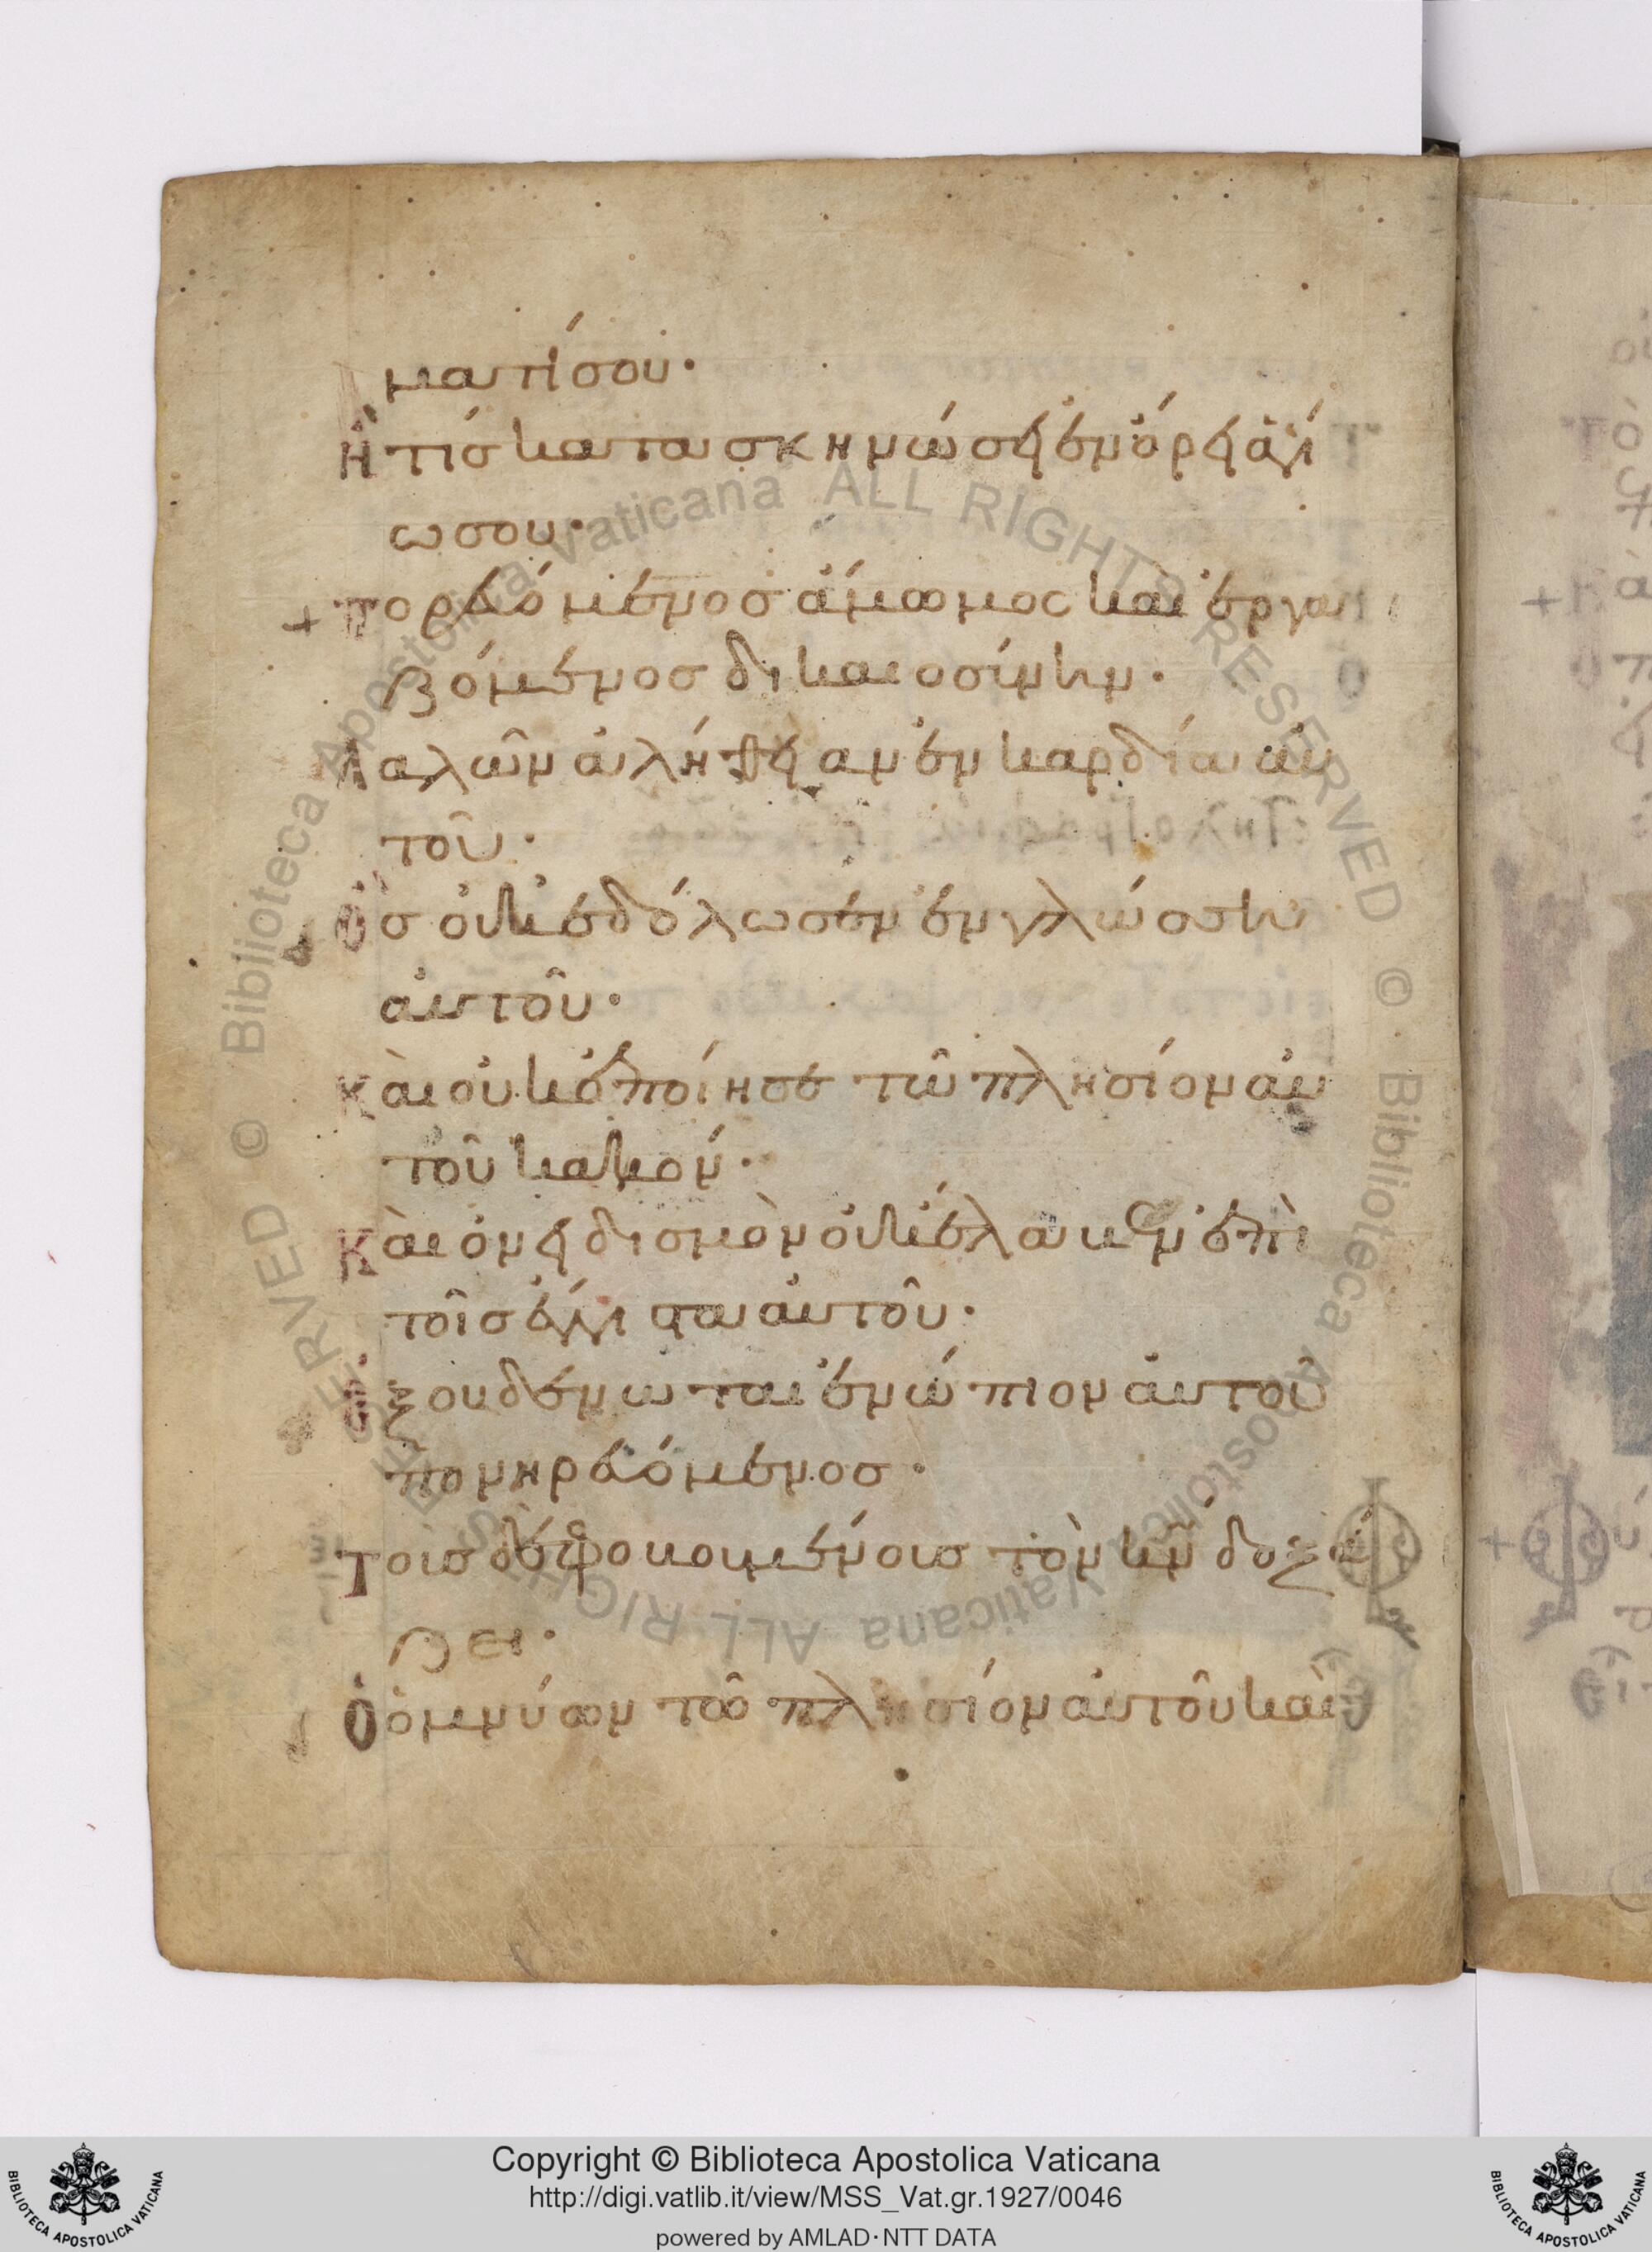 ματί σου·
Ἢ τίσ κατασκηνώσει ἐν ὄρει ἁγί
ω σου·
+ Πορευόμενοσ ἄμωμος καὶ ἐργα
ζόμενοσ δικαιοσίνην·
Λαλῶν ἀλήθειαν ἐν καρδία αὐ
τοῦ·
Ὃσ οὐκ ἐδόλωσεν ἐν γλώσση
αὐτοῦ·
Κὰι οὐκ ἐποίησε τῶ πλησίον αὐ
τοῦ κακόν·
Κὰι ὀνειδισμὸν οὐκ έλαβεν ἐπὶ
τοῖσ ἔγγιστα αὐτοῦ·
Ἐξουδένωται ἐνώπιον αὐτοῦ
πονηρευόμενοσ·
Τοισ δὲ φοβουμένοισ τὸν κν̄ δοξά
ζει·
Ὁ ὀμνύων τῶ πλησίον αὐτοῦ καὶ
Copyright © Biblioteca Apostolica Vaticana
http://digi.vatlib.it/view/MSS_Vat.gr.1927/0046
powered by AMLAD·NTT DATA
BIBLIOTECA APOSTOLICA VATICANA
BIBLIOTECA APOSTOLICA VATICANA
© Biblioteca Apostolica Vaticana ALL RIGHTS RESERVED
© Biblioteca Apostolica Vaticana ALL RIGHTS RESERVED